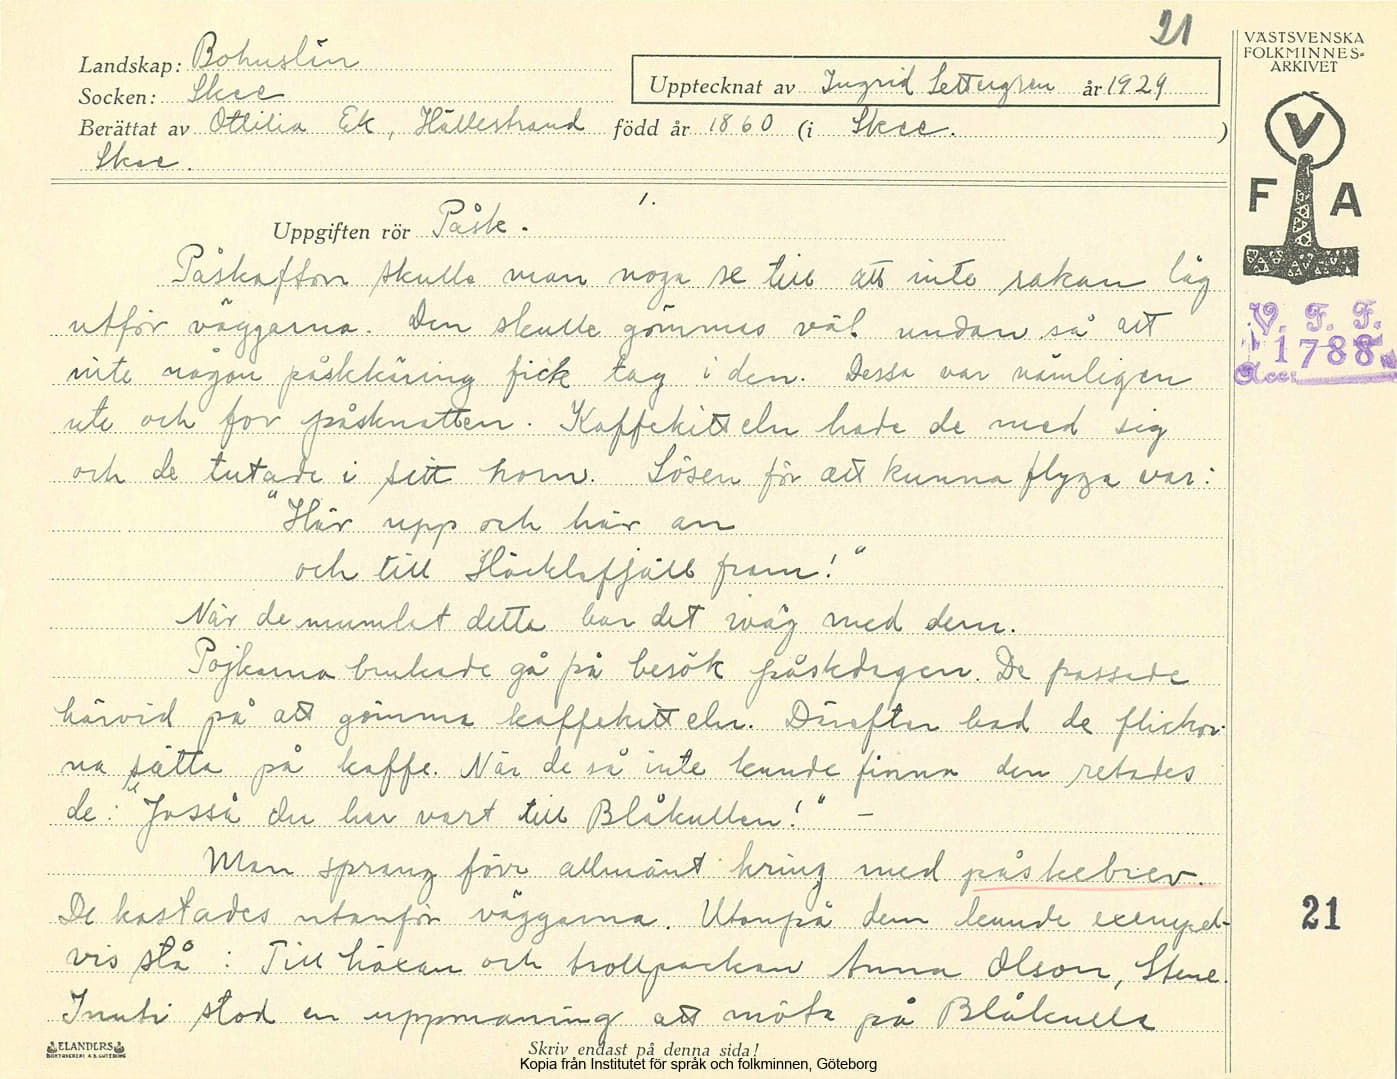 21
VÄSTSVENSKA
FOLKMINNES-
ARKIVET
V
F A
V. F. F.
1788
Acc:
Landskap: Bohuslän
Socken: Skee
Upptecknat av Ingrid Settergren år 1929
Berättat av Ottilia Ek, Hällestrand född år 1860 (i Skee. )
Skee.
1.
Uppgiften rör Påsk.
Påskafton skulle man noga se till att inte rakan låg
utför väggarna. Den skulle gömmas väl undan så att
inte någon påskkäring fick tag i den. Dessa var nämligen
ute och for påsknatten. Kaffekitteln hade de med sig
och de tutade i sitt horn. Lösen för att kunna flyga var:
"Här upp och här an
och till Häcklefjäll fram!"
När de mumlat detta bar det iväg med dem.
Pojkarna brukade gå på besök påskdagen. De passade
härvid på att gömma kaffekitteln. Därefter bad de flickor-
na sätta på kaffe. När de så inte kunde finna den retades
de: "Jasså du har vart till Blåkullen!" –
Man sprang förr allmänt kring med påskebrev.
De kastades utanför väggarna. Utanpå dem kunde exempel-
vis stå: Till häxan och trollpackan Anna Olson, Stene.
Inuti stod en uppmaning att möta på Blåkulla
21
ELANDERS
BOKTRYCKERI A.B. GÖTEBORG
Skriv endast på denna sida!
Kopia från Institutet för språk och folkminnen, Göteborg